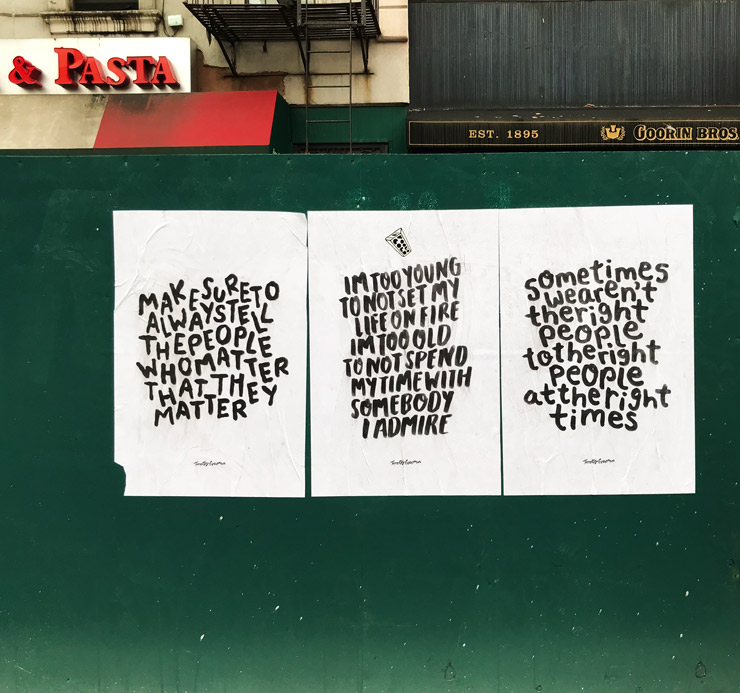 & PASTA
EST. 1895
GOORIN BROS
MAKE SURE TO
ALWAYS TELL
THE PEOPLE
WHO MATTER
THAT THEY
MATTER
IM TOO YOUNG
TO NOT SET MY
LIFE ON FIRE
IM TOO OLD
TO NOT SPEND
MY TIME WITH
SOMEBODY
I ADMIRE
sometimes
we aren't
the right
people
to the right
people
at the right
times